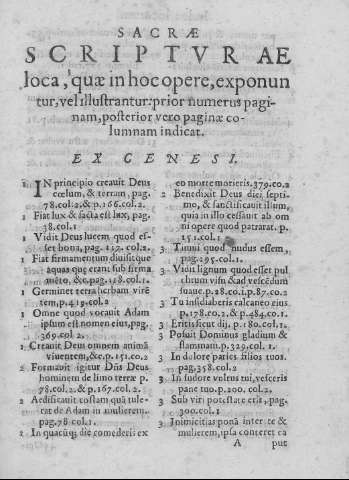 SACRÆ
SCRIPTVRAE
loca, quæ in hoc opere, exponun
tur, vel illustrantur: prior numerus pagi-
nam, posterior vero paginæ co-
lumnam indicat.
EX GENESI.
1 IN principio creauit Deus
cœlum, & terram, pag.
78.col.2.& p.166.col.2.
1 Fiat lux & facta est lux, pag.
38.col.1
1 Vidit Deus lucem quod es-
set bona, pag. col.2.
1 Fiat firmamentum diuisitque
aquas quę erant sub firma
mēto, &c.pag.118.col.1.
1 Germinet terra herbam virē
tem, p.419.col.2
1 Omne quod vocauit Adam
ipsum est nomen eius, pag.
369.col.2.
1 Creauit Deus omnem animā
viuentem, &c.p.151.co.2
2 Formauit igitur Dn̄s Deus
hominem de limo terræ p.
78.col.2.& p.167.col.2.
2 Aedificauit costam quā tule-
rat de Adam in mulierem.
pag.78 col.1.
2 In quacūq; die comederis ex
eo morte morieris.379.co.2
2 Benedixit Deus diei septi-
mo, & sanctificauit illum,
quia in illo cessauit ab om
ni opere quod patrarat. p.
151.col.1
3 Timui quod nudus essem,
pag.295.col.1.
3 Vidit lignum quod esset pul
chrum visu & ad vescēdum
suaue p.28.co.1.p.87.co.2
3 Tu insidiaberis calcaneo eius
p.178.co.2.& p.484.co.1.
3 Eritis sicut dij, p.180.col.1.
3 Posuit Dominus gladium &
flammam.p.329.col.1.
3 In dolore paries filios tuos.
pag.358.col.2
3 In sudore vultus tui, vesceris
pane tuo.p.200.col.2.
3 Sub viri potestate eris, pag.
300.col.1
3 Inimicitias ponā inter te &
mulierem, ipsa conteret ca
A put